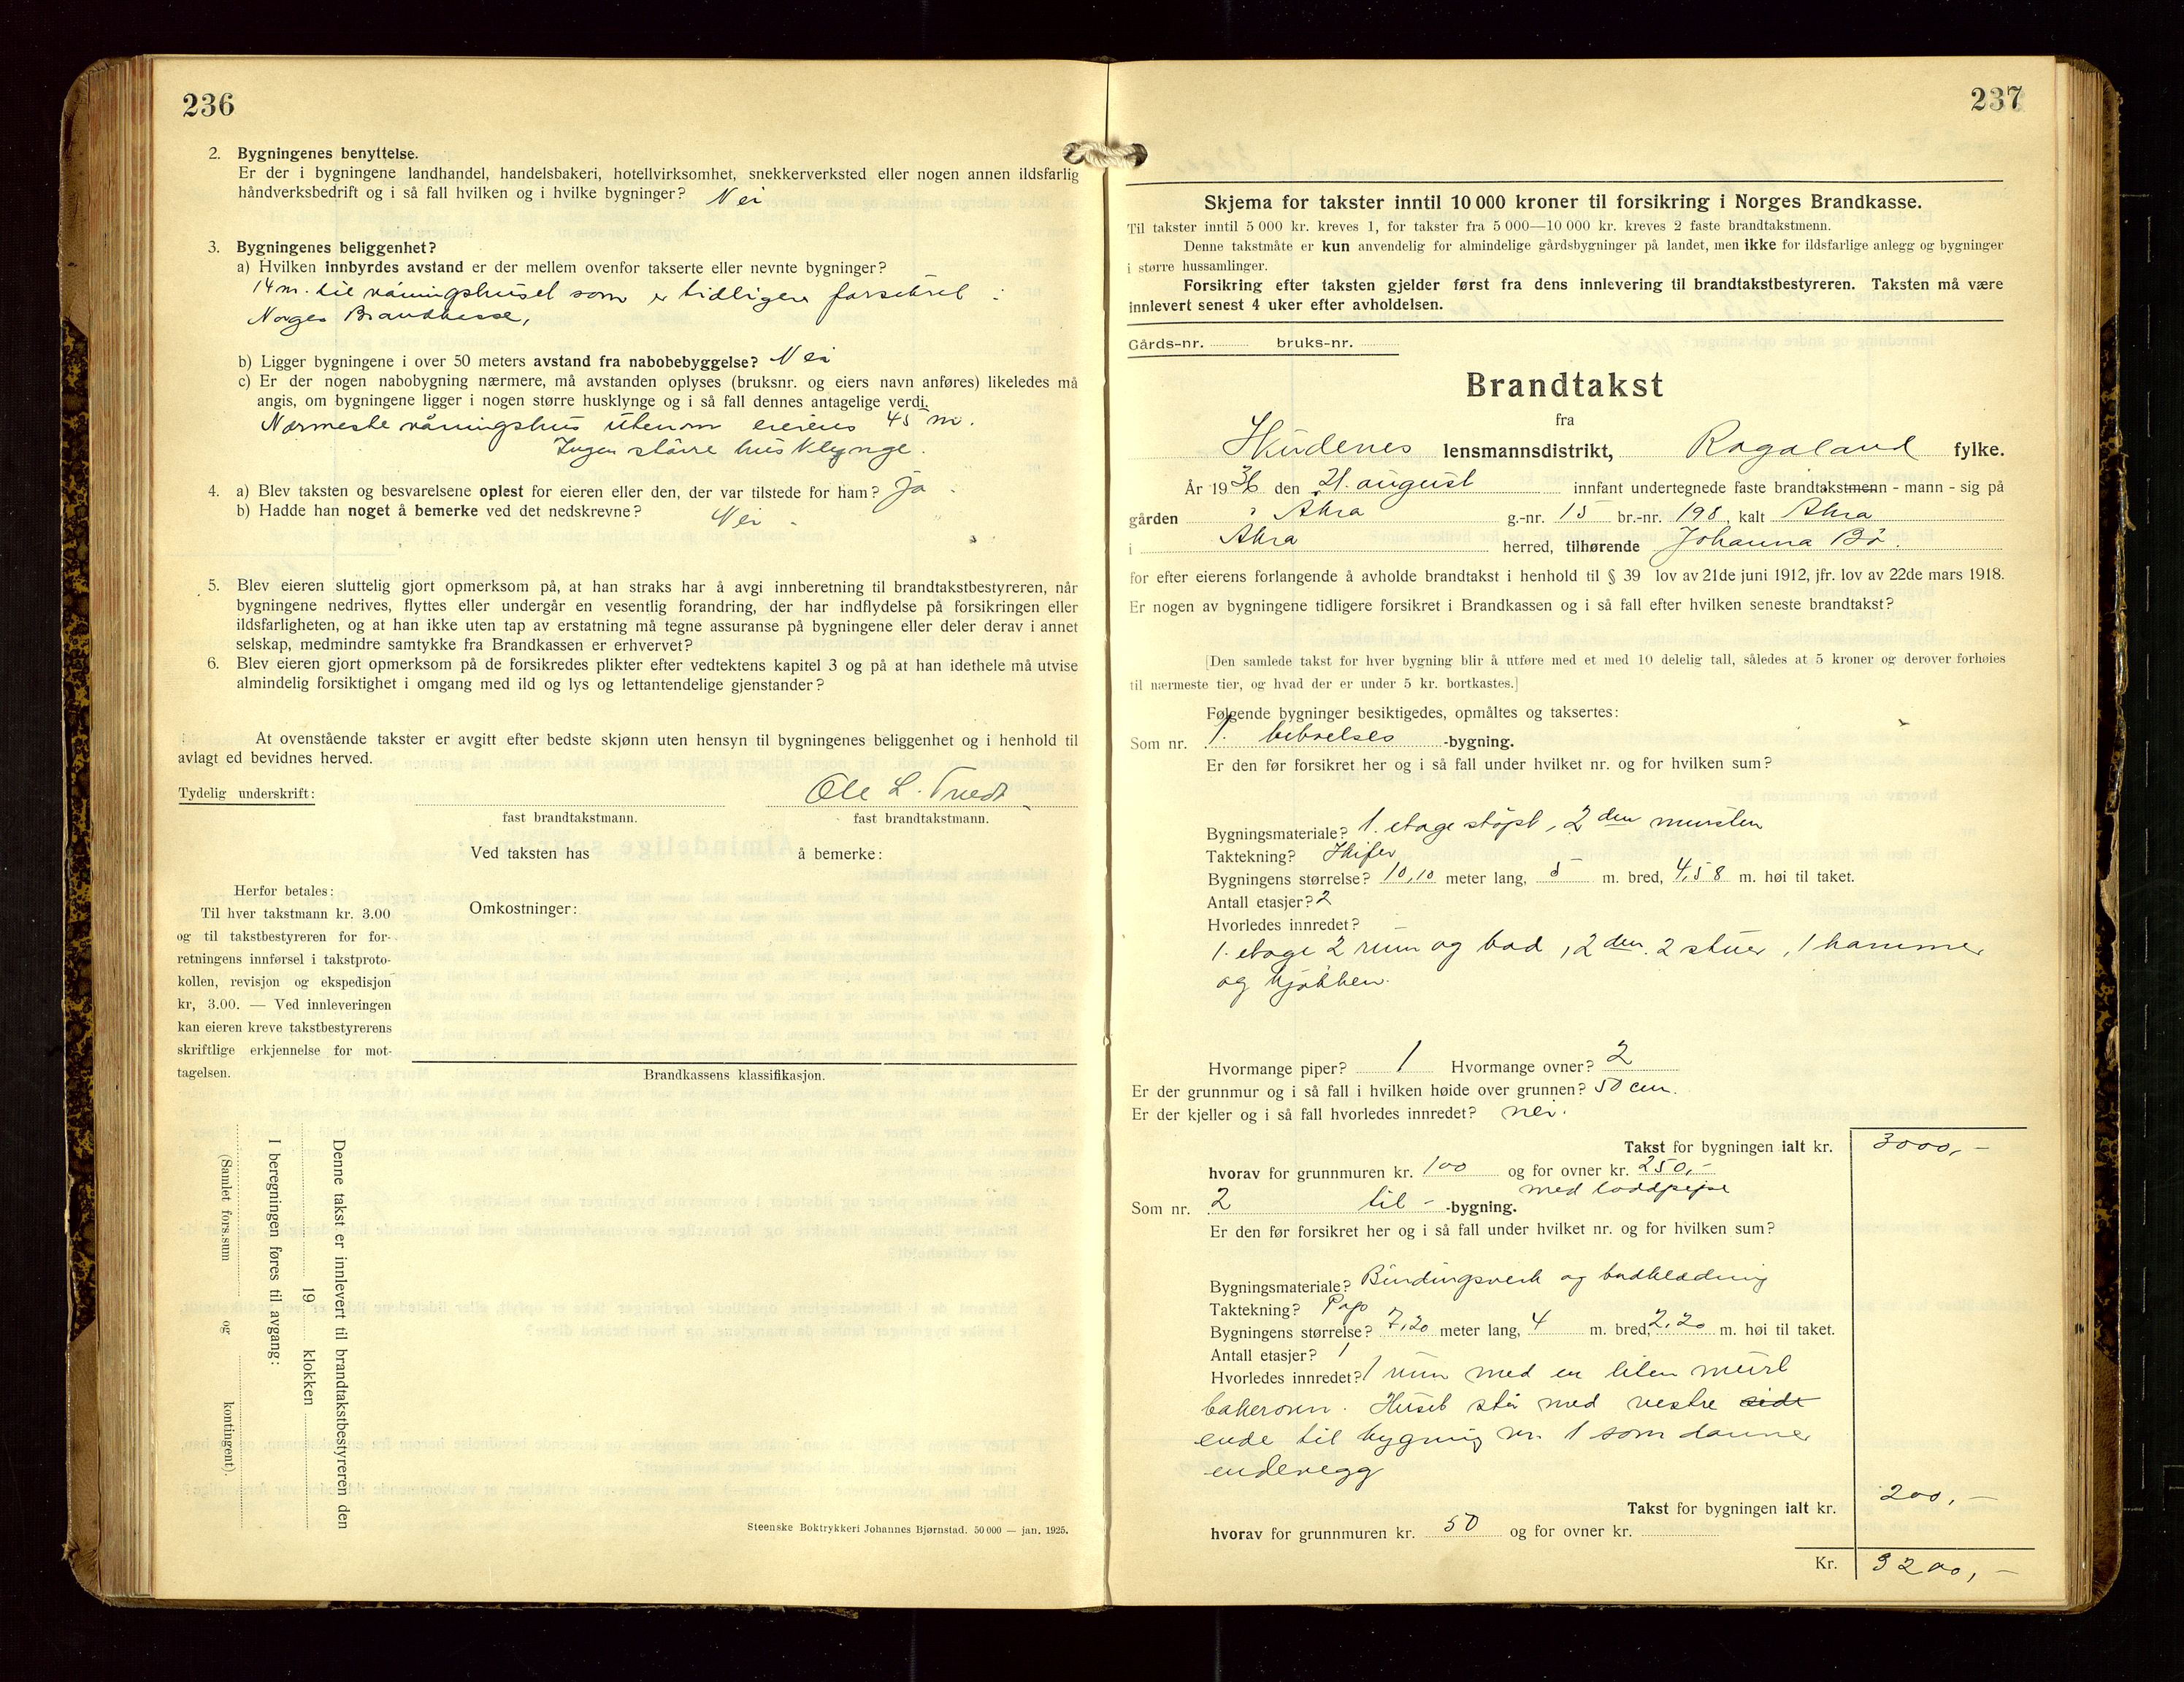 236
2. Bygningenes benyttelse.
Er der i bygningene landhandel, handelsbakeri, hotellvirksomhet, snekkerverksted eller nogen annen ildsfarlig
håndverksbedrift og i så fall hvilken og i hvilke bygninger? Nei
3. Bygningenes beliggenhet?
a) Hvilken innbyrdes avstand er der mellem ovenfor takserte eller nevnte bygninger?
14 m. til våningshuset som er tidligere forsikret i
Norges Brandkasse,
b) Ligger bygningene i over 50 meters avstand fra nabobebyggelse? Nei
c) Er der nogen nabobygning nærmere, må avstanden oplyses (bruksnr. og eiers navn anføres) likeledes må
angis, om bygningene ligger i nogen større husklynge og i så fall dennes antagelige verdi.
Nærmeste våningshus utenom eierens 45 m.
Ingen større hus klynge.
4. a) Blev taksten og besvarelsene oplest for eieren eller den, der var tilstede for ham? Ja
b) Hadde han noget å bemerke ved det nedskrevne? Nei -
5. Blev eieren sluttelig gjort opmerksom på, at han straks har å avgi innberetning til brandtakstbestyreren, når
bygningene nedrives, flyttes eller undergår en vesentlig forandring, der har indflydelse på forsikringen eller
ildsfarligheten, og at han ikke uten tap av erstatning må tegne assuranse på bygningene eller deler derav i annet
selskap, medmindre samtykke fra Brandkassen er erhvervet?
6. Blev eieren gjort opmerksom på de forsikredes plikter efter vedtektens kapitel 3 og på at han idethele må utvise
almindelig forsiktighet i omgang med ild og lys og lettantendelige gjenstander?
At ovenstående takster er avgitt efter bedste skjønn uten hensyn til bygningenes beliggenhet og i henhold til
avlagt ed bevidnes herved.
Tydelig underskrift: Ole L.
fast brandtakstmann. fast brandtakstmann.
Ved taksten has å bemerke:
Herfor betales:
Til hver takstmann kr. 3.00
og til takstbestyreren for for-
retningens innførsel i takstproto-
kollen, revisjon og ekspedisjon
kr, 3.00. — Ved innleveringen
kan eieren kreve takstbestyrerens
skriftlige erkjennelse for mot-
tagelsen.
Omkostninger:
Brandkassens klassifikasjon.
Denne takst er innlevert til brandtakstbestyreren den
19 klokken
I beregningen føres til avgang:
(Samlet fors.sum og kontingent).
Steenske Boktrykkeri Johannes Bjørnstad. 50 000 — jan. 1925.
237
Skjema for takster inntil 10 000 kroner til forsikring i Norges Brandkasse.
Til takster inntil 5 000 kr. kreves 1, for takster fra 5 000—10 000 kr. kreves 2 faste brandtakstmenn.
Denne takstmåte er kun anvendelig for almindelige gårdsbygninger på landet, men ikke for ildsfarlige anlegg og bygninger
i større hussamlinger.
Forsikring efter taksten gjelder først fra dens innlevering til brandtakstbestyreren. Taksten må være
innlevert senest 4 uker efter avholdelsen.
Gårds-nr. bruks-nr.
Brandtakst
fra
Skudenes lensmannsdistrikt, Rogaland fylke.
År 1936 den 21. august innfant undertegnede faste brandtakstmenn - mann - sig på
gården Åkra g.-nr. 15 br.-nr. 198, kalt Åkra
i Åkra herred, tilhørende Johanna Bø.
for efter eierens forlangende å avholde brandtakst i henhold til § 39 lov av 21de juni 1912, jfr. lov av 22de mars 1918.
Er nogen av bygningene tidligere forsikret i Brandkassen og i så fall efter hvilken seneste brandtakst?
[Den samlede takst for hver bygning blir å utføre med et med 10 delelig tall, således at 5 kroner og derover forhøies
til nærmeste tier, og hvad der er under 5 kr. bortkastes.]
Følgende bygninger besiktigedes, opmåltes og taksertes:
Som nr. 1. beboelses -bygning.
Er den før forsikret her og i så fall under hvilket nr. og for hvilken sum?
Bygningsmateriale? 1. etage støpt, 2 den mursten
Taktekning? Skifer
Bygningens størrelse? 10,10 meter lang, 5 m. bred, 4,58 m. høi til taket.
Antall etasjer? 2
Hvorledes innredet?
1. etage 2 rum og bad, 2 den. 2 stuer, 1 kammer
og kjøkken.
Hvormange piper? 1 Hvormange ovner? 2
Er der grunnmur og i så fall i hvilken høide over grunnen? 50 cm.
Er der kjeller og i så fall hvorledes innredet? nei.
Takst for bygningen ialt kr. 3000,-
hvorav for grunnmuren kr. 100 og for ovner kr. 250,-
med
Som nr. 2 til - -bygning.
Er den før forsikret her og i så fall under hvilket nr. og for hvilken sum?
Bygningsmateriale? Bindingsverk og bordklædning
Taktekning? Papp
Bygningens størrelse? 7,20 meter lang, 4 m. bred, 2.20 m. høi til taket.
Antall etasjer? 1
Hvorledes innredet? 1 rum med en liten murt
bakerovn. Huset står med vestre side
ende til bygning nr. 1 som danner
endevegg
Takst for bygningen ialt kr. 200,-
hvorav for grunnmuren kr. 50 og for ovner kr.
Kr. 3200,-